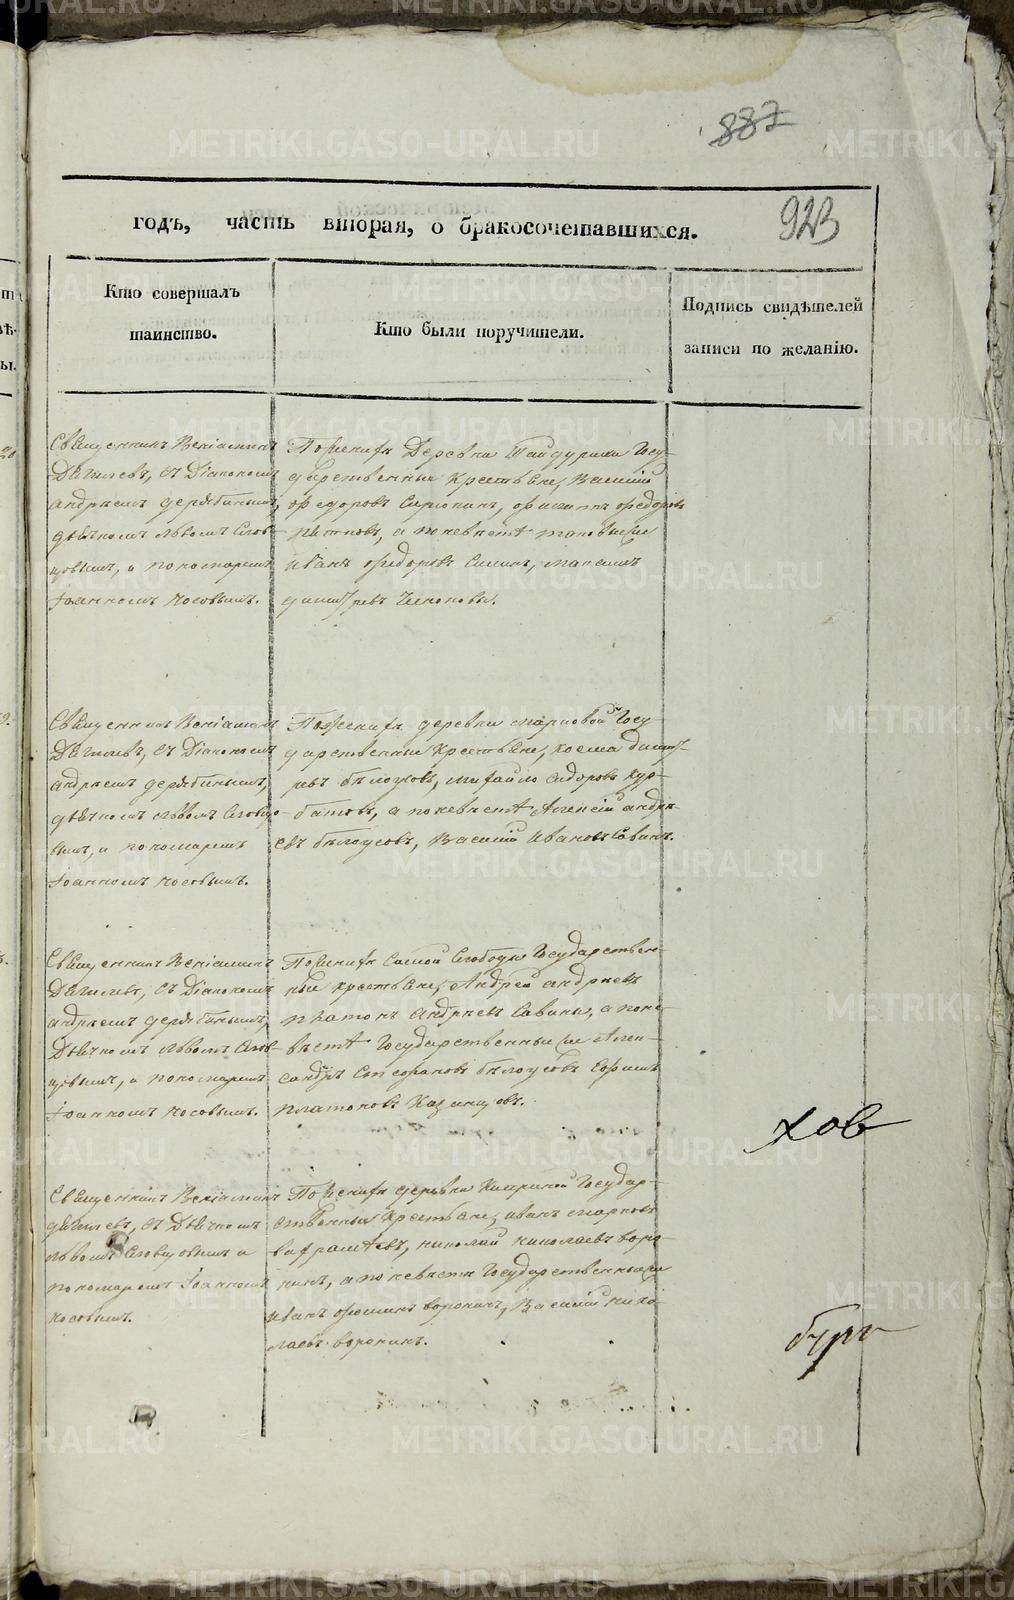 887
923
годъ, часть вторая, о бракосочетавшихся.
Кто совершалъ
таинство.
Кто были поручители.
Подпись свидѣтелей
записи по желанію.
Священникъ Веніаминъ
съ Діакономъ
Андреемъ Дерябинымъ,
дьячкомъ Львомъ Слов-
цовымъ, и пономаремъ
Іоанномъ Носовымъ.
По женихѣ Деревни Госу-
дарственные Крестьяне, Василій
Федоровъ Федоровъ
а по невѣстѣ таковые же
Иванъ Федоровъ
Священникъ Веніаминъ
съ Діакономъ
Андреемъ Дерябинымъ,
дьячкомъ Львомъ Словцо-
вымъ, и пономаремъ
Іоанномъ Носовымъ.
По женихѣ деревни Марковой Госу-
дарственные Крестьяне, Козма Дмит-
ревъ Бѣлоусовъ, Михайло Сидоровъ Кур-
батовъ, а по невѣстѣ Алексѣй Андре-
евъ Бѣлоусовъ, Василій Ивановъ Савинъ.
Священникъ Веніаминъ
съ Діакономъ
Андреемъ Дерябинымъ,
Дьячкомъ Львомъ Слов-
цовымъ, и пономаремъ
Іоанномъ Носовымъ.
По женихѣ Самой Слободы Государствен-
ные крестьяне, Андрей Андреевъ
Платонъ Андреевъ Савины, а по не-
вѣстѣ Государственные же Алек-
сандръ Бѣлоусовъ Ефимъ
Платоновъ Казанцовъ.
хов
Священникъ Веніаминъ
съ Дьячкомъ
Львомъ Словцовымъ и
пономаремъ Іоанномъ
Носовымъ.
По женихѣ деревни Государ-
ственные Крестьяне, Иванъ Марковъ
Николай Николаевъ Воро-
нинъ, а по невѣстѣ Государственные же
Иванъ Фоминъ Воронинъ, Василій Нико-
лаевъ Воронинъ.
METRIKI.GASO-URAL.RU